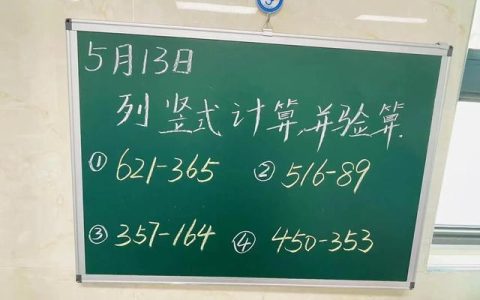 5月13日
列竖式计算,并验算.
①621-365 ②516-89
③357-164 ④450-353